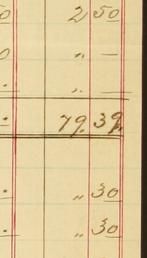 0 2 50
0 „ —
. „ —
. 79. 39.
. „ 30
. „ 30